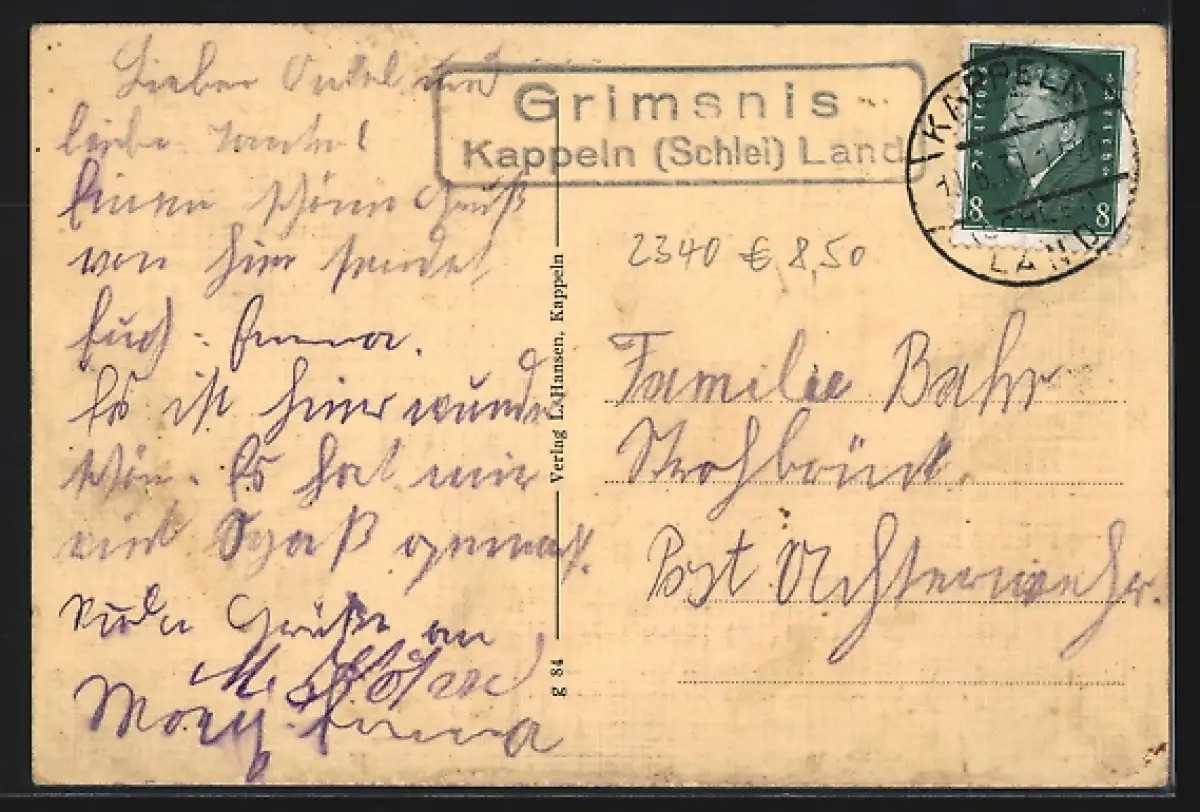 Lieber Onkel und
liebe Tante!
Einen schönen Gruß
von hier sendet
Euch Anna.
Es ist hier wunder
schön. Es hat mir
viel Spaß gemacht.
Grüße an
Grimsnis
Kappeln (Schlei) Land
KAPPELN
LAND
8 8
2340 € 8,50
Verlag L. Hansen, Kappeln
g 84
Familie Bahr
Strohbrück.
Post Achterwehr.